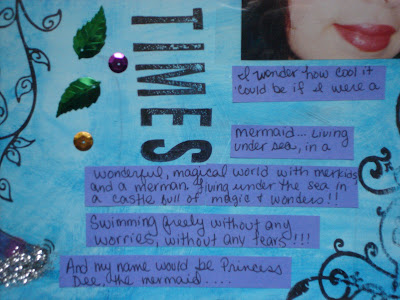 TIMES
I wonder how cool it
could be if I were a
mermaid... Living
under sea, in a
wonderful, magical world with merkids
and a merman, living under the sea in
a castle full of magic & wonders!!
Swimming freely without any
worries, without any tears!!!
And my name would be Princess
Dee, the mermaid.....